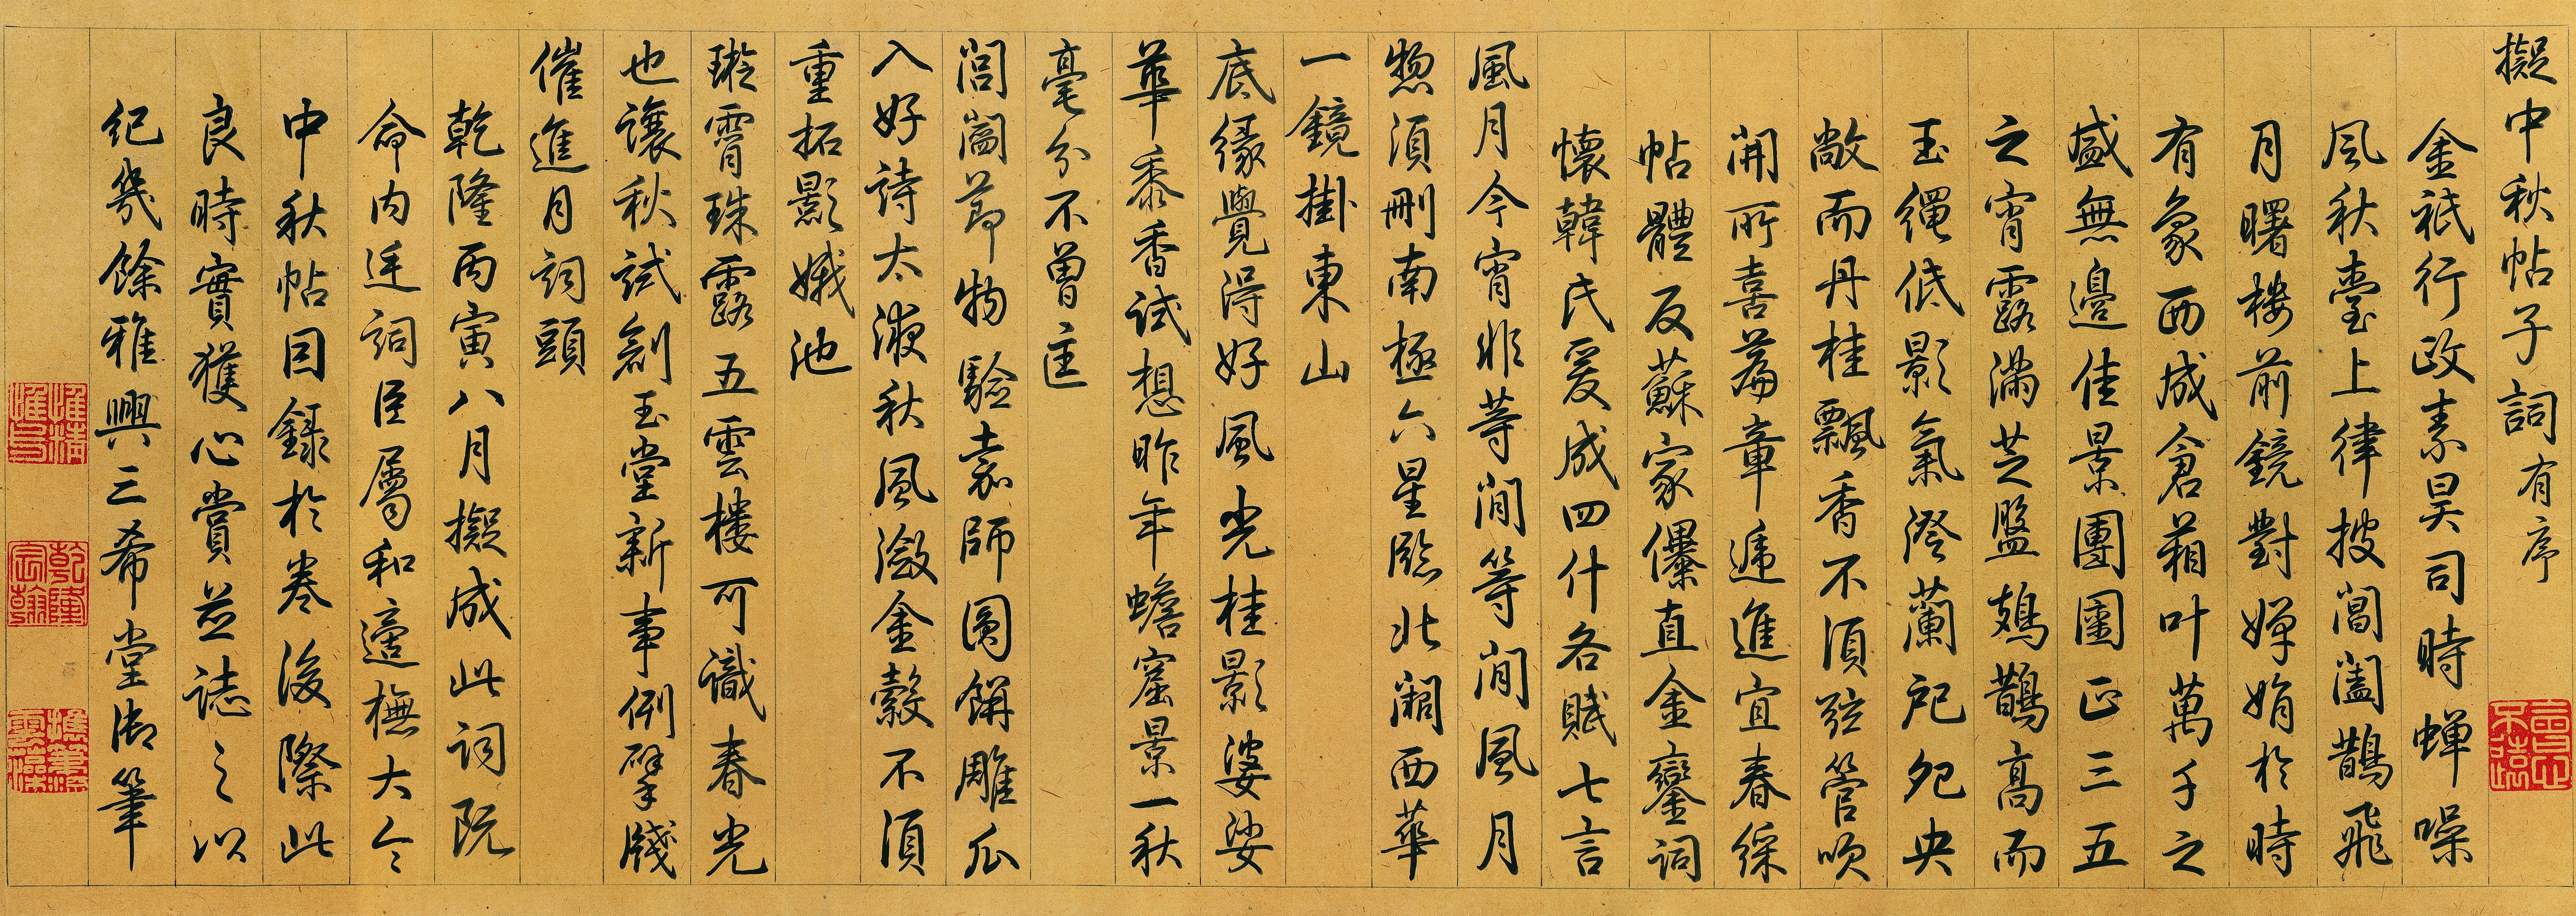 擬中秋帖子詞有序
金祇行政素昊司時蟬噪
風秋臺上律披閶闔鵲飛
月曙樓前鏡對嬋娟於時
有象西成倉箱叶萬千之
盛無邊佳景團圞正三五
之宵露滿芝盤鳷鵲高而
玉繩低影氣澄蘭戺兜央
敞而丹桂飄香不須弦管喧
開所喜篇章遞進宜春綵
帖體反蘇家儤直金鑾詞
懷韓氏爰成四什各賦七言
風月今宵非等閒等閒風月
惣須刪南極六星臨北闕西華
一鏡掛東山
底緣覺得好風光桂影婆娑
華黍香試想昨年蟾窟景一秋
毫分不曾
閶闔節物驗嘉師圓餅雕瓜
入好詩太液秋風瀲金縠不須
重拓影娥池
璇霄珠露五雲樓可識春光
也讓秋試創玉堂新事例擘牋
催進月詞頭
乾隆丙寅八月擬成此詞既
命內廷詞臣屬和適橅大令
中秋帖因錄於卷後際此
良時實獲心賞並誌之以
紀幾餘雅興三希堂御筆
惟精惟一
乾隆宸翰